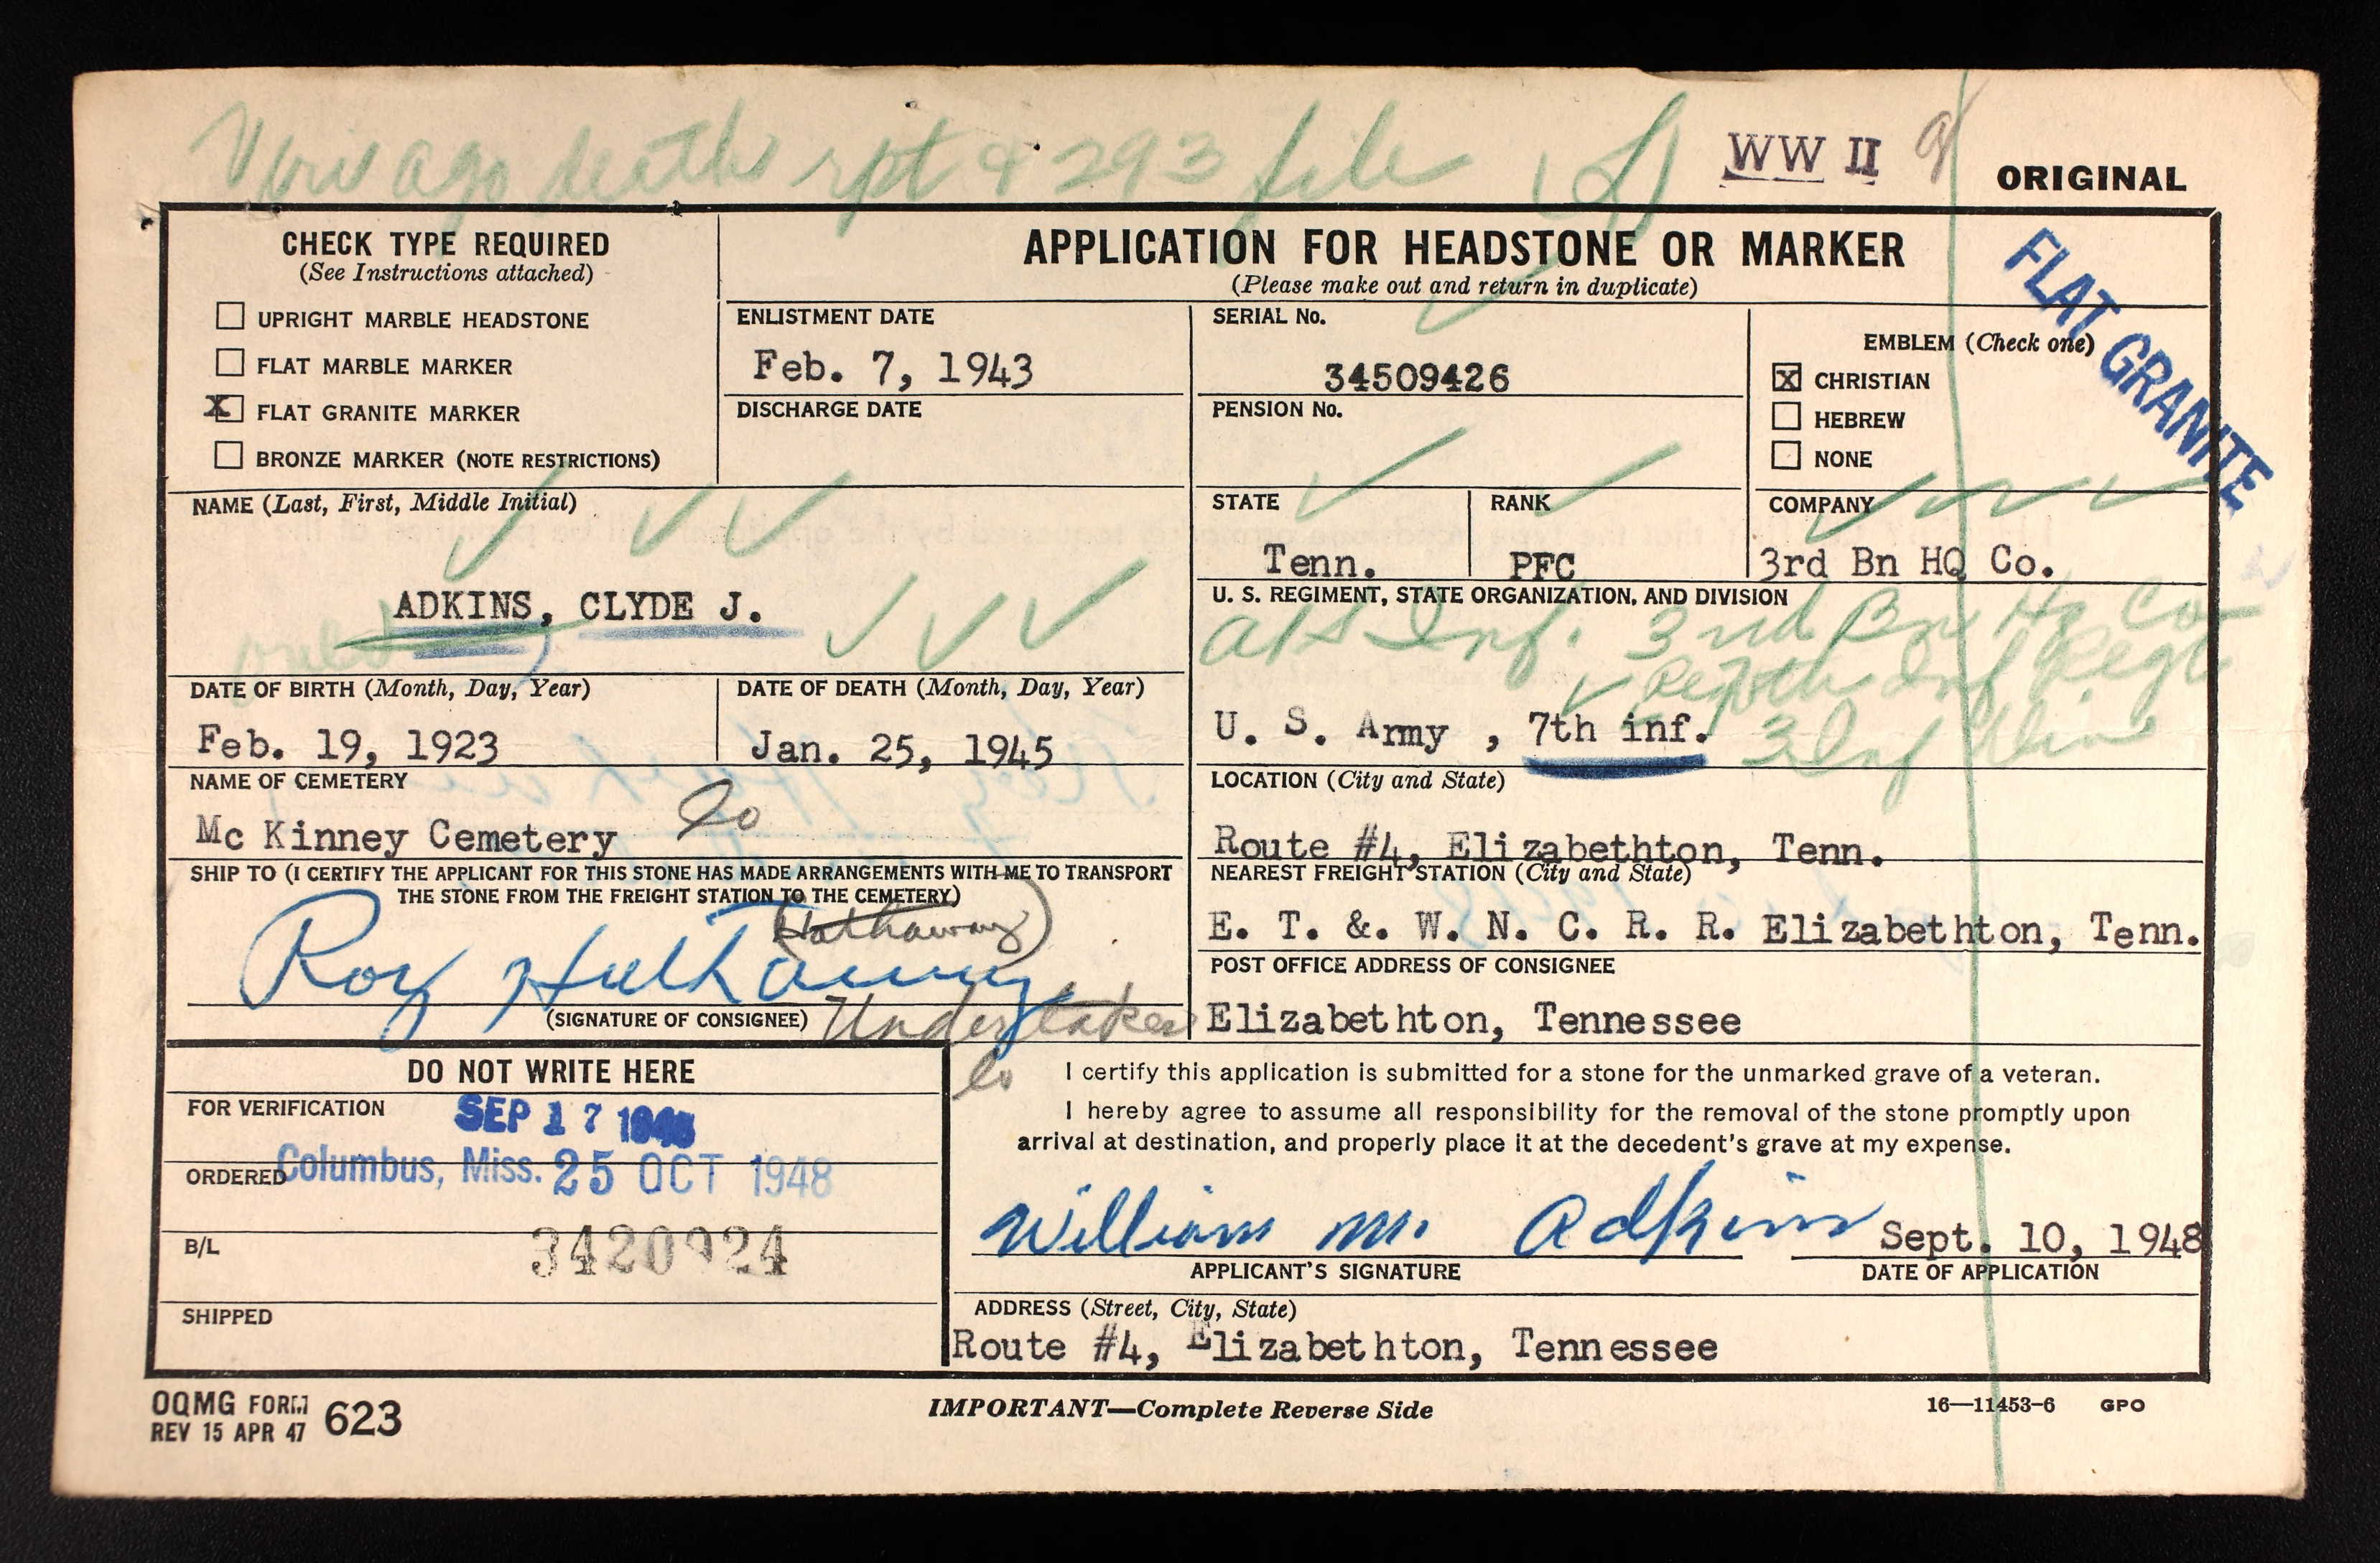 Veri ago death rpt & 293 file
WW II
ORIGINAL
CHECK TYPE REQUIRED
(See Instructions attached)
UPRIGHT MARBLE HEADSTONE
FLAT MARBLE MARKER
X FLAT GRANITE MARKER
BRONZE MARKER (NOTE RESTRICTIONS)
APPLICATION FOR HEADSTONE OR MARKER
(Please make out and return in duplicate)
FLAT GRANITE
ENLISTMENT DATE
Feb. 7, 1943
DISCHARGE DATE
SERIAL No.
34509426
PENSION No.
EMBLEM (Check one)
X CHRISTIAN
HEBREW
NONE
NAME (Last, First, Middle Initial)
ADKINS, CLYDE J.
STATE
Tenn.
RANK
PFC
COMPANY
3rd Bn HQ Co.
U. S. REGIMENT, STATE ORGANIZATION, AND DIVISION
Inf. 3rd Bn Hq Co
7th Inf Regt
U. S. Army , 7th inf.
3 Inf Div
DATE OF BIRTH (Month, Day, Year)
Feb. 19, 1923
DATE OF DEATH (Month, Day, Year)
Jan. 25, 1945
NAME OF CEMETERY
Mc Kinney Cemetery
LOCATION (City and State)
Route #4, Elizabethton, Tenn.
SHIP TO (I CERTIFY THE APPLICANT FOR THIS STONE HAS MADE ARRANGEMENTS WITH ME TO TRANSPORT
THE STONE FROM THE FREIGHT STATION TO THE CEMETERY)
(Hathaway)
Roy Hathaway
(SIGNATURE OF CONSIGNEE) Undertaker
NEAREST FREIGHT STATION (City and State)
E. T. &. W. N. C. R. R. Elizabethton, Tenn.
POST OFFICE ADDRESS OF CONSIGNEE
Elizabethton, Tennessee
DO NOT WRITE HERE
FOR VERIFICATION
SEP 17 1948
ORDERED Columbus, Miss. 25 OCT 1948
B/L
3420924
SHIPPED
I certify this application is submitted for a stone for the unmarked grave of a veteran.
I hereby agree to assume all responsibility for the removal of the stone promptly upon
arrival at destination, and properly place it at the decedent's grave at my expense.
William M. Adkins
Sept. 10, 1948
APPLICANT'S SIGNATURE
DATE OF APPLICATION
ADDRESS (Street, City, State)
Route #4, Elizabethton, Tennessee
OQMG FORM 623
REV 15 APR 47
IMPORTANT—Complete Reverse Side
16—11453-6 GPO